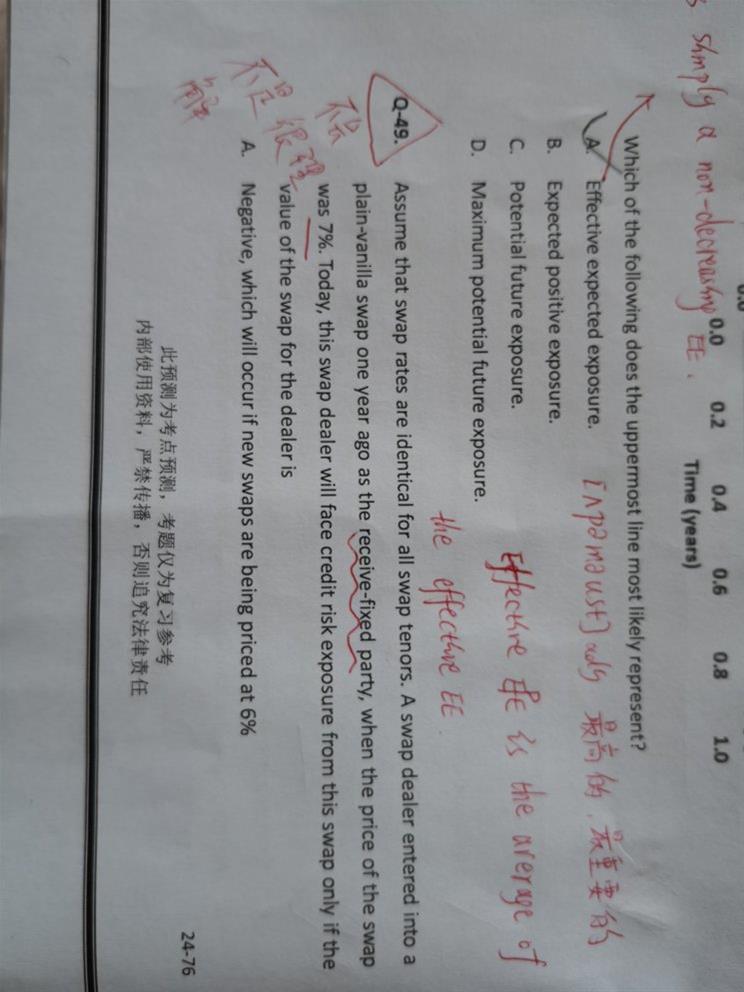 0.0 0.2 0.4 0.6 0.8 1.0
Time (years)
simply a non-decreasing EE.
Which of the following does the uppermost line most likely represent?
A. Effective expected exposure.
最高的，最重要的
B. Expected positive exposure.
C. Potential future exposure.
Effective EPE is the average of
D. Maximum potential future exposure.
the effective EE
Q-49. Assume that swap rates are identical for all swap tenors. A swap dealer entered into a
plain-vanilla swap one year ago as the receive-fixed party, when the price of the swap
was 7%. Today, this swap dealer will face credit risk exposure from this swap only if the
value of the swap for the dealer is
不是很理解
A. Negative, which will occur if new swaps are being priced at 6%
此预测为考点预测，考题仅为复习参考
内部使用资料，严禁传播，否则追究法律责任
24-76